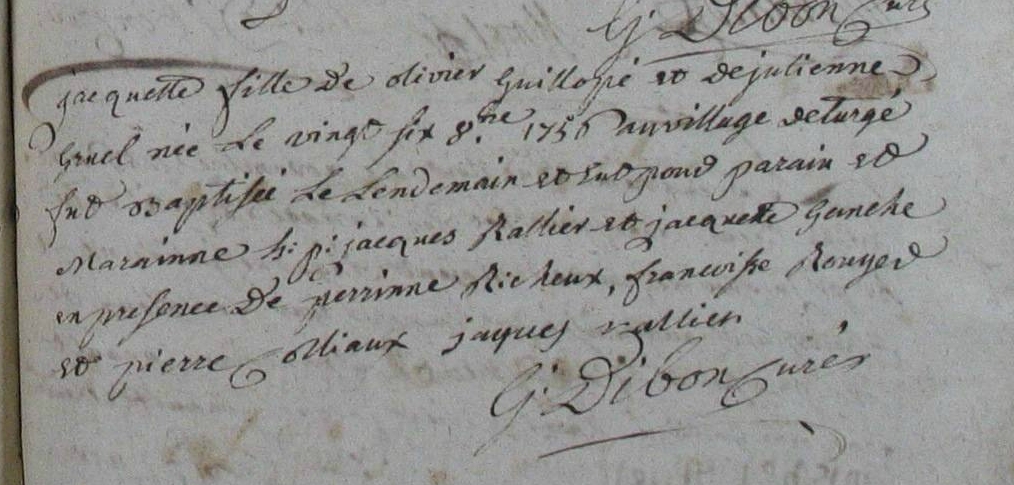 G. Dibon Curé
jacquette fille De olivier Guillopé et de julienne
Gruel née Le vingt six 8.bre 1756 au village de Turgé
fut Baptisée Le Lendemain et eut pour parain et
Marainne h: p: jacques Rallier et jacquette Ganche
en presence De perrinne Richeux, francoisse Rouyer
et pierre olliaux jaques rallier
G. Dibon Curé